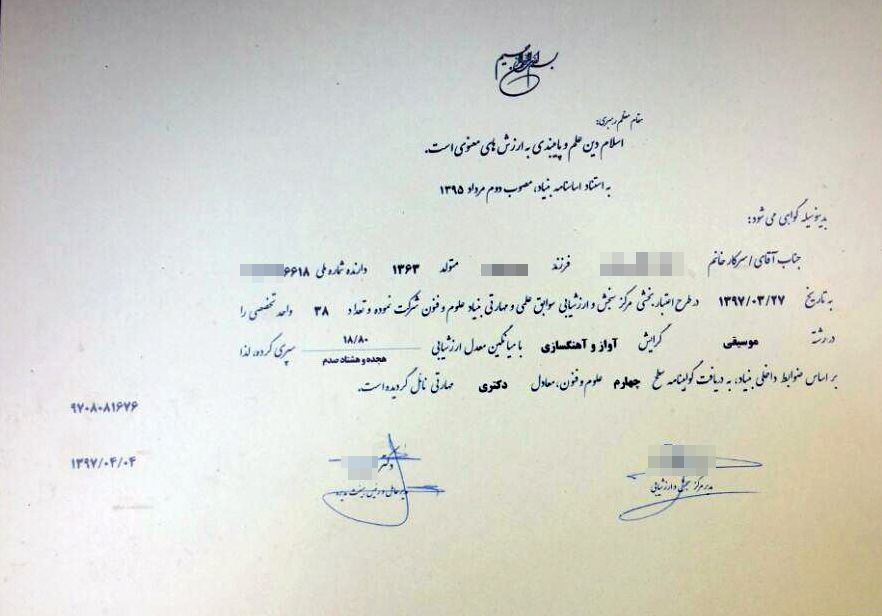 بسم الله الرحمن الرحیم
مقام معظم رهبری:
اسلام دین علم و پایبندی به ارزش های معنوی است.
به استناد اساسنامه بنیاد، مصوب دوم مرداد ۱۳۹۵
بدینوسیله گواهی می شود:
جناب آقای / سرکار خانم فرزند متولد ۱۳۶۳ دارنده شماره ملی ۶۶۱۸
به تاریخ ۱۳۹۷/۰۳/۲۷ در طرح اعتباربخشی مرکز سنجش و ارزشیابی سوابق علمی و مهارتی بنیاد علوم و فنون شرکت نموده و تعداد ۳۸ واحد تخصصی را
در رشته موسیقی گرایش آواز و آهنگسازی با میانگین معدل ارزشیابی ۱۸/۸۰ هجده و هشتاد صدم سپری کرده، لذا
بر اساس ضوابط داخلی بنیاد، به دریافت گواهینامه سطح چهارم علوم و فنون، معادل دکتری مهارتی نائل گردیده است.
۹۷۰۸۰۸۱۶۷۶
۱۳۹۷/۰۴/۰۴
دکتر
مدیر مرکز سنجش و ارزشیابی